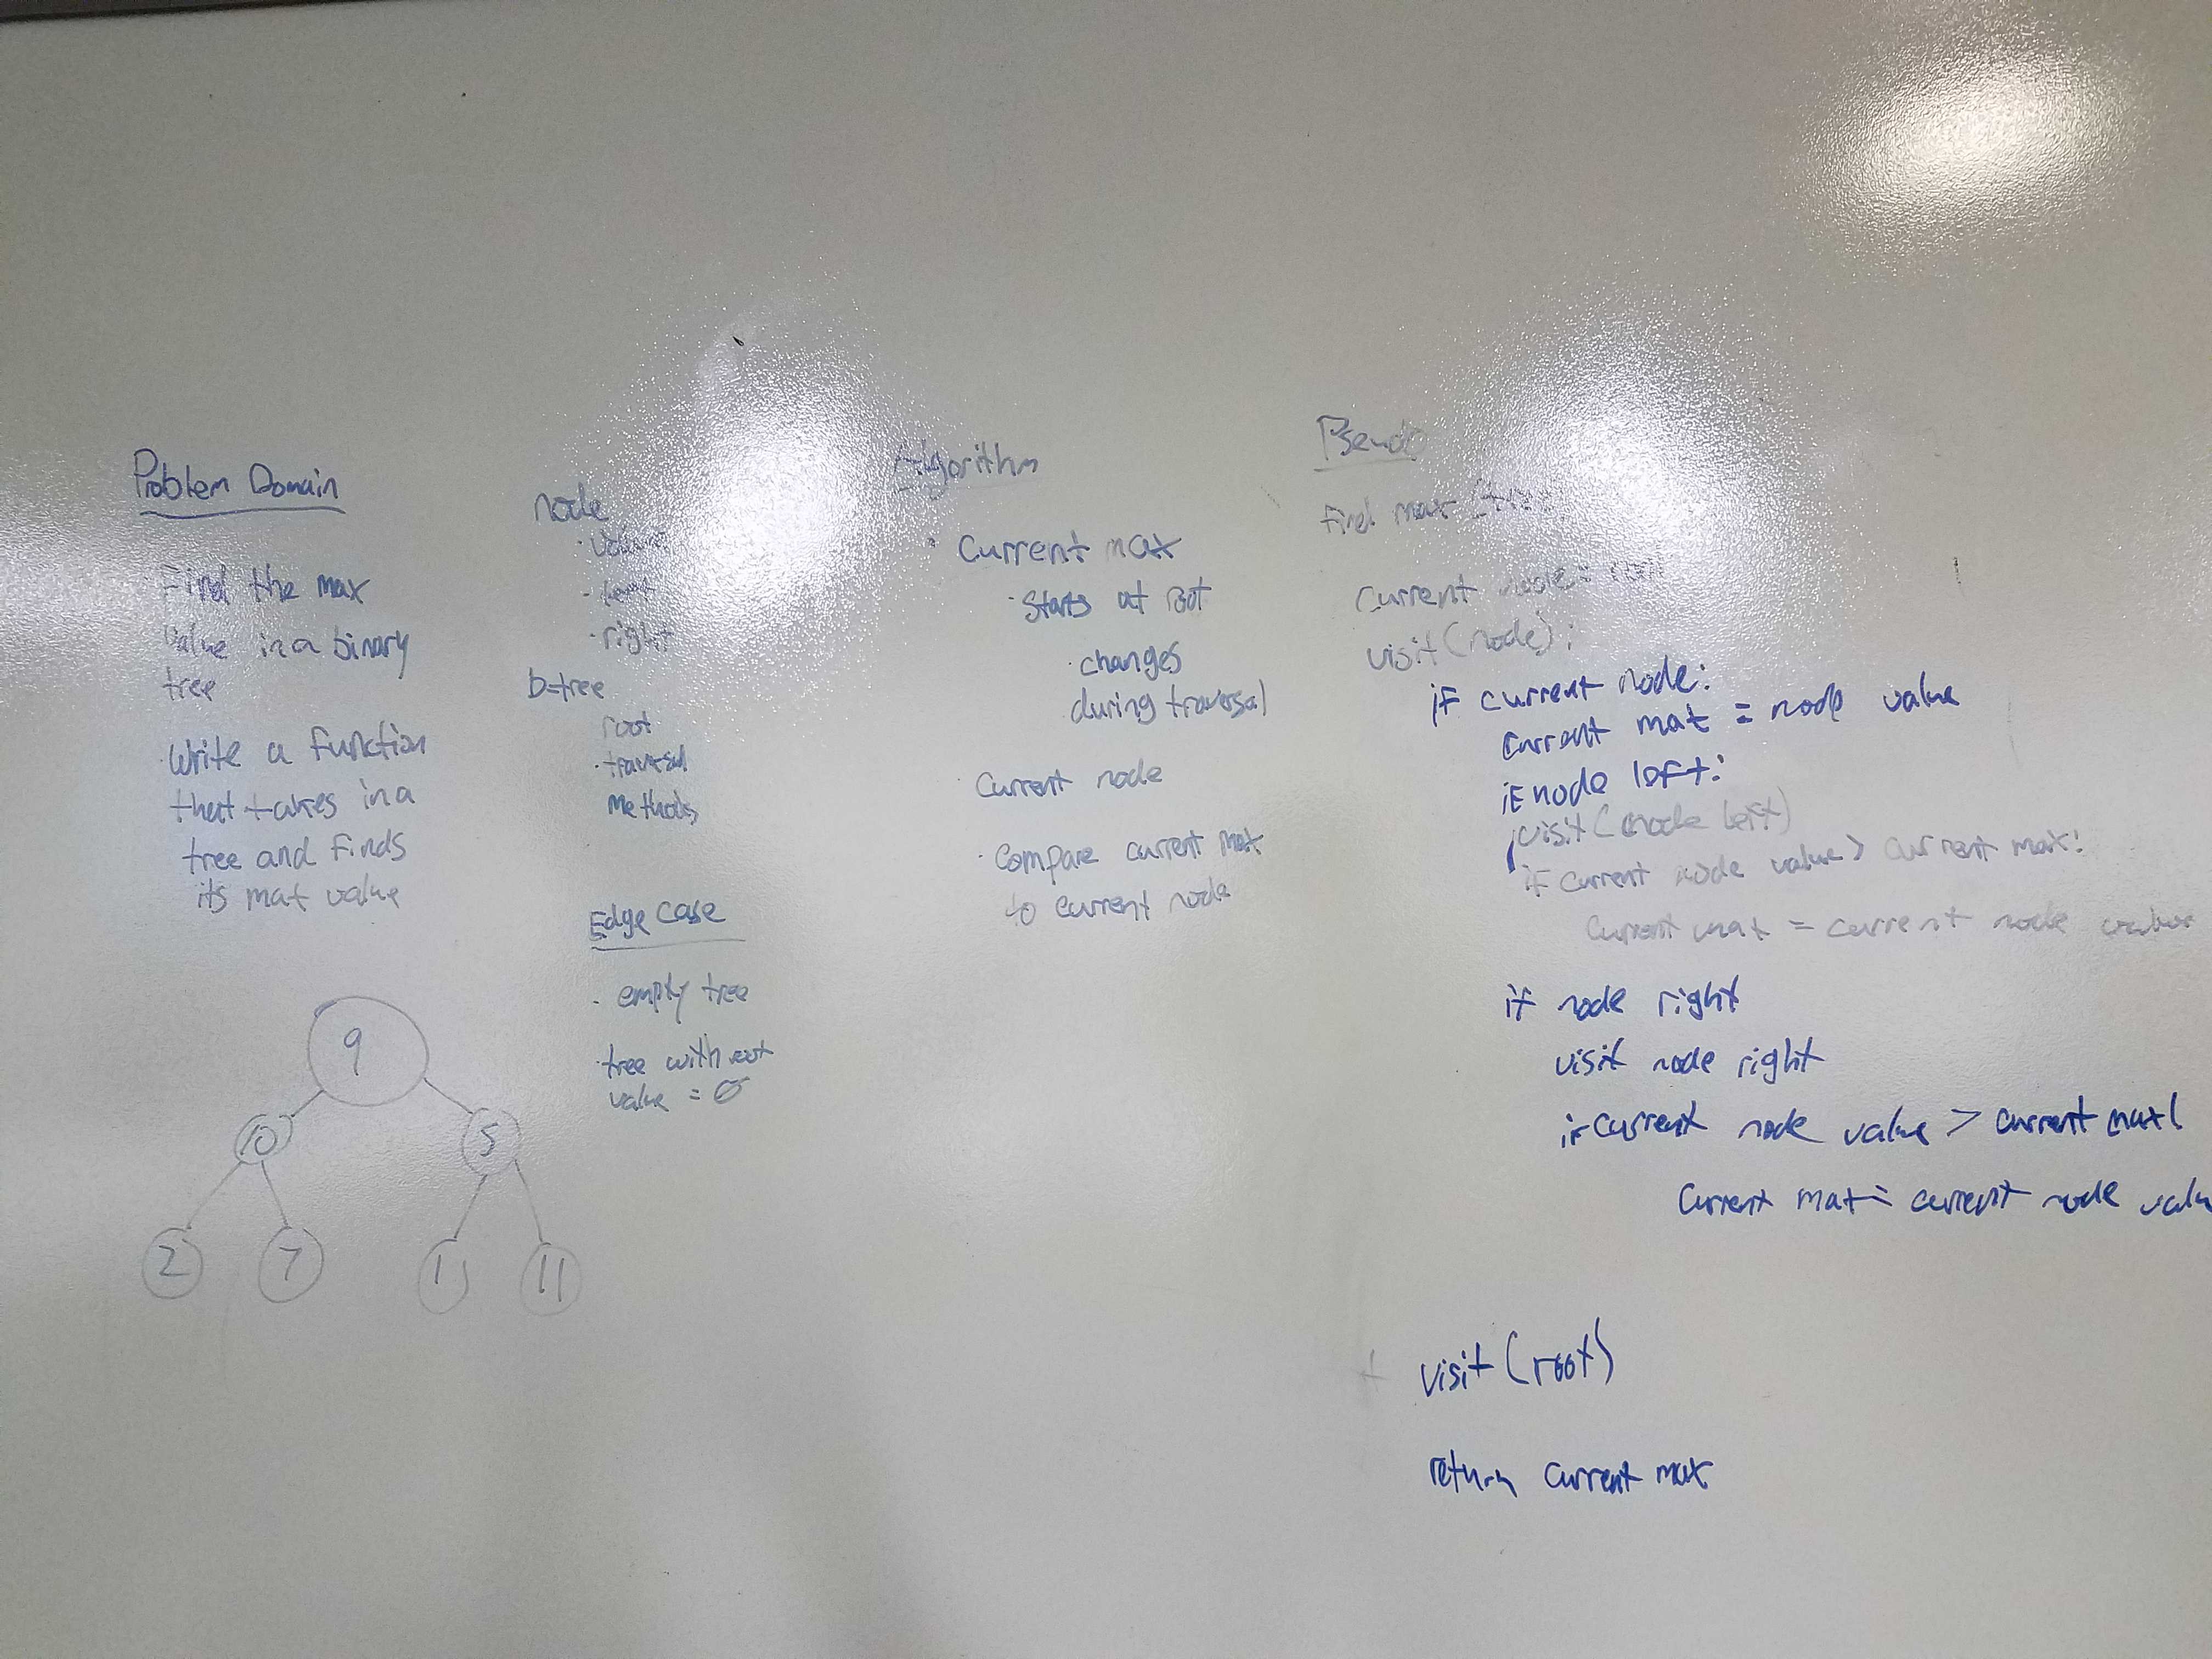 Problem Domain
Find the max
value in a binary
tree
· Write a function
that takes in a
tree and finds
its max value
9
10
5
2
7
1
11
node
· value
· left
· right
b-tree
root
· traversal
methods
Edge case
· empty tree
· tree with root
value = 0
Algorithm
· Current max
· Starts at root
· changes
during traversal
· Current node
· Compare current max
to current node
Pseudo
find max
current node = root
visit(node):
if current node:
current max = node value
if node left:
visit(node left)
if current node value > current max:
current max = current node value
if node right
visit node right
if current node value > current max:
current max = current node valu
visit(root)
return current max